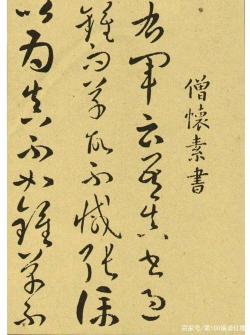 僧懷素書
右軍云吾真書過
鍾而草故不減張僕
以為真不如鍾草不
百家号/